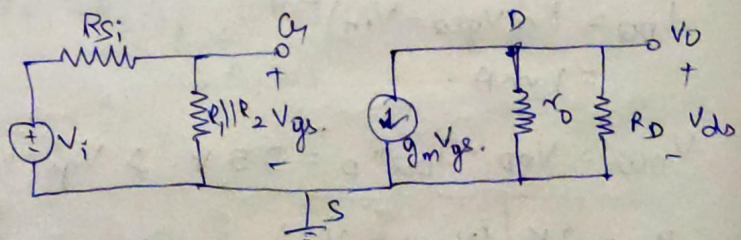 Rsi
G
D
VO
+
+
R1||R2
Vgs.
+
Vi
↓
gmVgs.
ro
RD
Vds
-
-
-
S